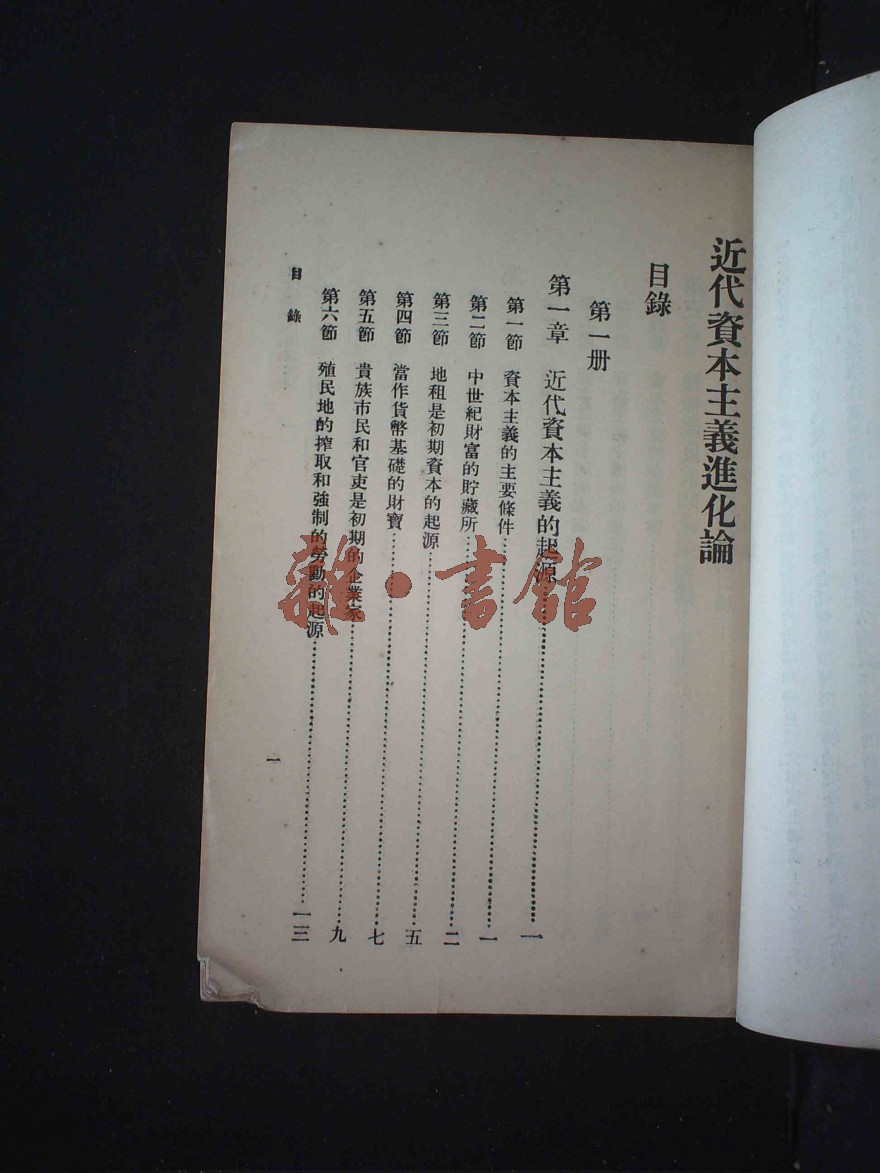 近代資本主義進化論
目錄
第一册
第一章 近代資本主義的起源……一
第一節 資本主義的主要條件……一
第二節 中世紀財富的貯藏所……二
第三節 地租是初期資本的起源……五
第四節 當作貨幣基礎的財寶……七
第五節 貴族市民和官吏是初期的企業家……九
第六節 殖民地的搾取和強制的勞動的起源……一三
目錄
一
雜·書館